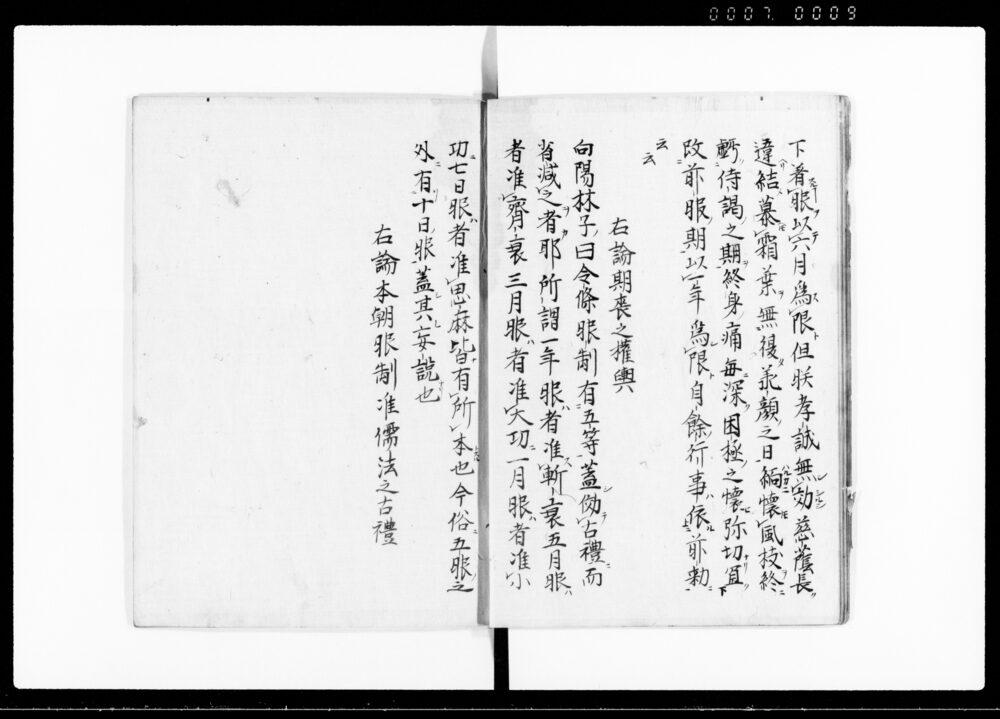 0007. 0009
下者服以六月為限但朕孝誠無効慈蔭長
違結慕霜葉無復承顔之日緬懐風枝終
虧侍謁之期終身痛毎深罔極之懐弥切宜
改前服期以一年為限自餘行事依前勅
云云
右論期喪之權輿
向陽林子曰令條服制有五等蓋倣古禮而
省減之者耶所謂一年服者准斬衰五月服
者准齊衰三月服者准大功一月服者准小
功七日服者准思麻皆有所本也今俗五服之
外有十日服蓋其妄說也
右論本朝服制准儒法之古禮